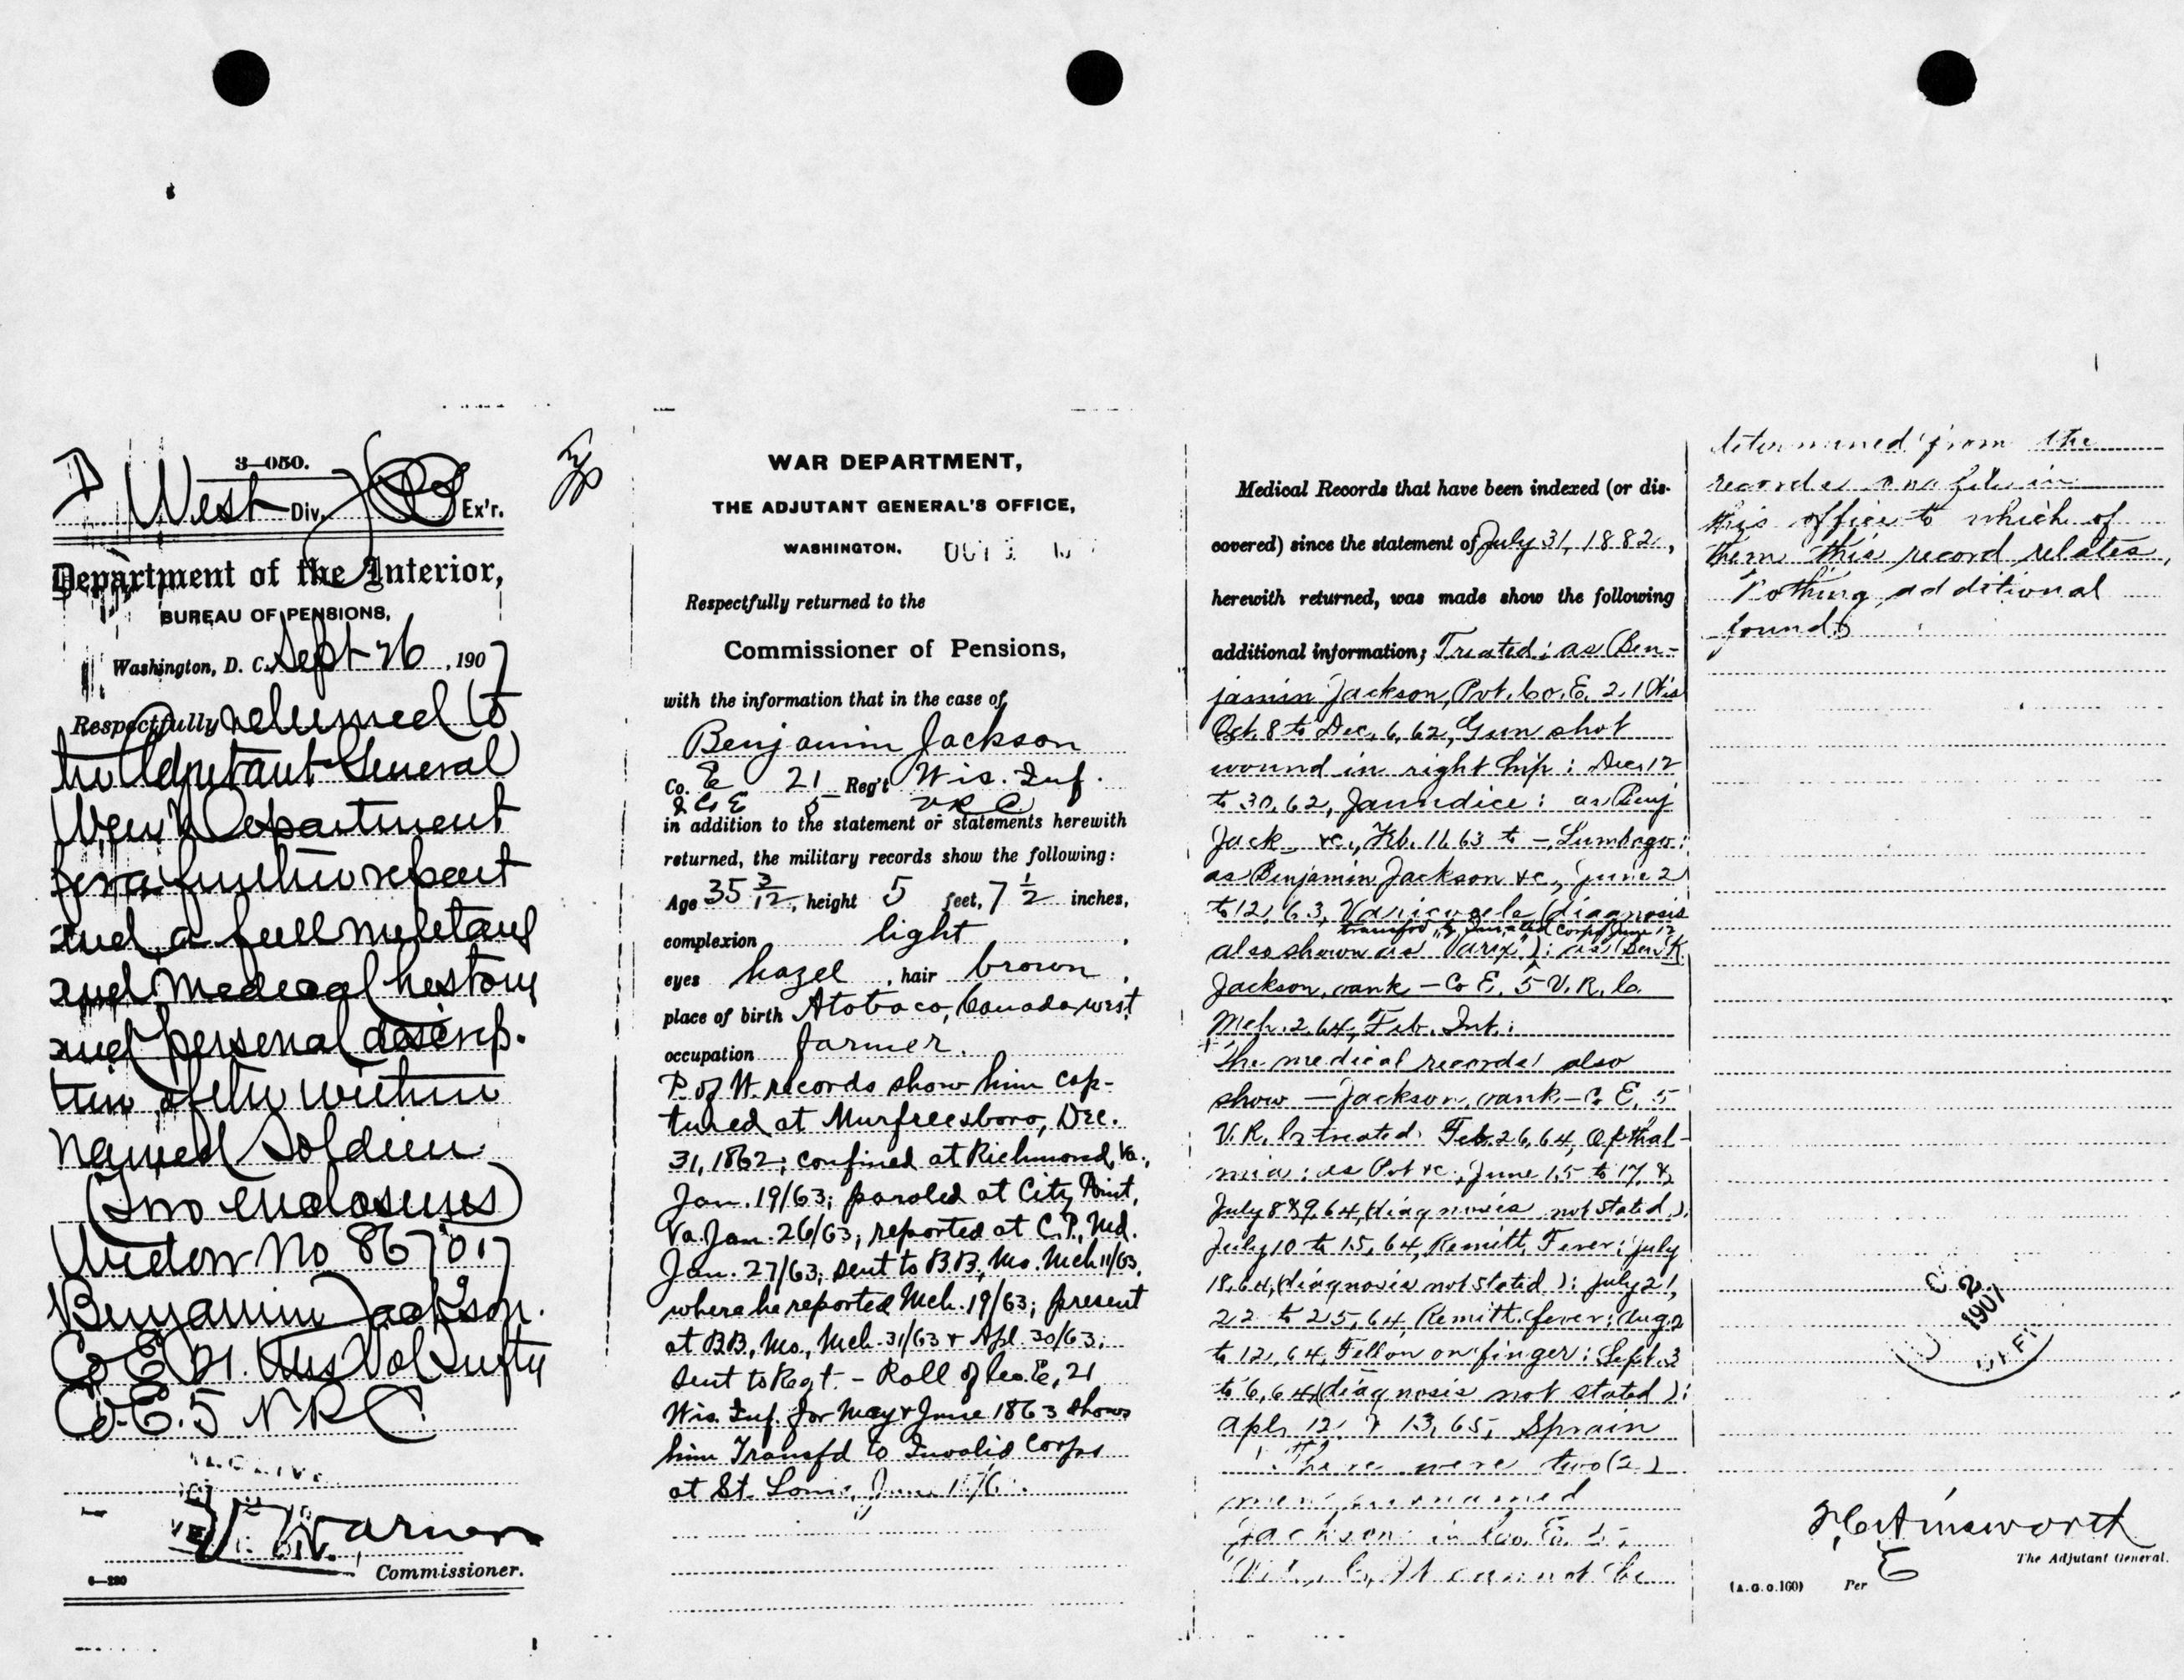 3—050.
West Div. Ex'r.
Department of the Interior,
BUREAU OF PENSIONS,
Washington, D. C. Sept 26, 1907
Respectfully returned to
the Adjutant General
War Department
for a further report
and a full military
and medical history
and personal descrip-
tion of the within
named soldier
(Two enclosures)
Widow No 867017
Benjamin Jackson.
Co E 21. Wis Vol Infty
Co. E. 5 V R C
V. Warner
Commissioner.
6—280
WAR DEPARTMENT,
THE ADJUTANT GENERAL'S OFFICE,
WASHINGTON, OCT
Respectfully returned to the
Commissioner of Pensions,
with the information that in the case of
Benjamin Jackson
Co. E 21 Reg't Wis. Inf.
& Co E 5 V R C
in addition to the statement or statements herewith
returned, the military records show the following:
Age 35 3/12, height 5 feet, 7 1/2 inches,
complexion light,
eyes hazel, hair brown,
place of birth Atobaco, Canada west
occupation farmer.
P. of W. records show him cap-
tured at Murfreesboro, Dec.
31, 1862; confined at Richmond, Va.,
Jan. 19/63; paroled at City Point,
Va. Jan. 26/63; reported at C.P., Md.
Jan. 27/63; sent to B.B., Mo. Mch 11/63,
where he reported Mch. 19/63; present
at B.B., Mo., Mch. 31/63 & Apl. 30/63;
Sent to Regt. - Roll of Co. E, 21
Wis. Inf. for May & June 1863 shows
him Transfd to Invalid Corps
at St. Louis, June
Medical Records that have been indexed (or dis-
covered) since the statement of July 31, 1882,
herewith returned, was made show the following
additional information; Treated: as Ben-
jamin Jackson, Pvt. Co. E. 21 Wis
Oct. 8 to Dec. 6, 62, Gun shot
wound in right hip: Dec. 12
to 30, 62, Jaundice: as Benj
Jack &c., Feb. 11 63 to — Lumbago:
as Benjamin Jackson &c., June 2
to 12, 63, Varicocele (diagnosis
transfd to Invalid Corps June 12
also shown as "Varix"): as Ben K.
Jackson, rank — Co E, 5 V. R. C.
Mch. 2, 64, Feb. Int.:
The medical records also
show — Jackson, rank — Co. E. 5
V. R. C. treated: Feb. 26, 64, Opthal-
mia: as Pvt &c., June 15 to 17, &
July 8 & 9, 64, (diagnosis not stated):
July 10 to 15, 64, Remitt. Fever: July
18, 64, (diagnosis not stated): July 21,
22 to 25, 64, Remitt. fever: Aug 2
to 12, 64, Fellon on finger: Sept. 3
to 6, 64 (diagnosis not stated):
Apl. 12 & 13, 65, Sprain
There were two (2)
men surnamed
Jackson in Co. E. 5
V. R. C. It cannot be
determined from the
records on file in
this office to which of
them this record relates,
Nothing additional
found.
2
1907
F C Ainsworth
The Adjutant General.
(A. G. O. 160) Per E